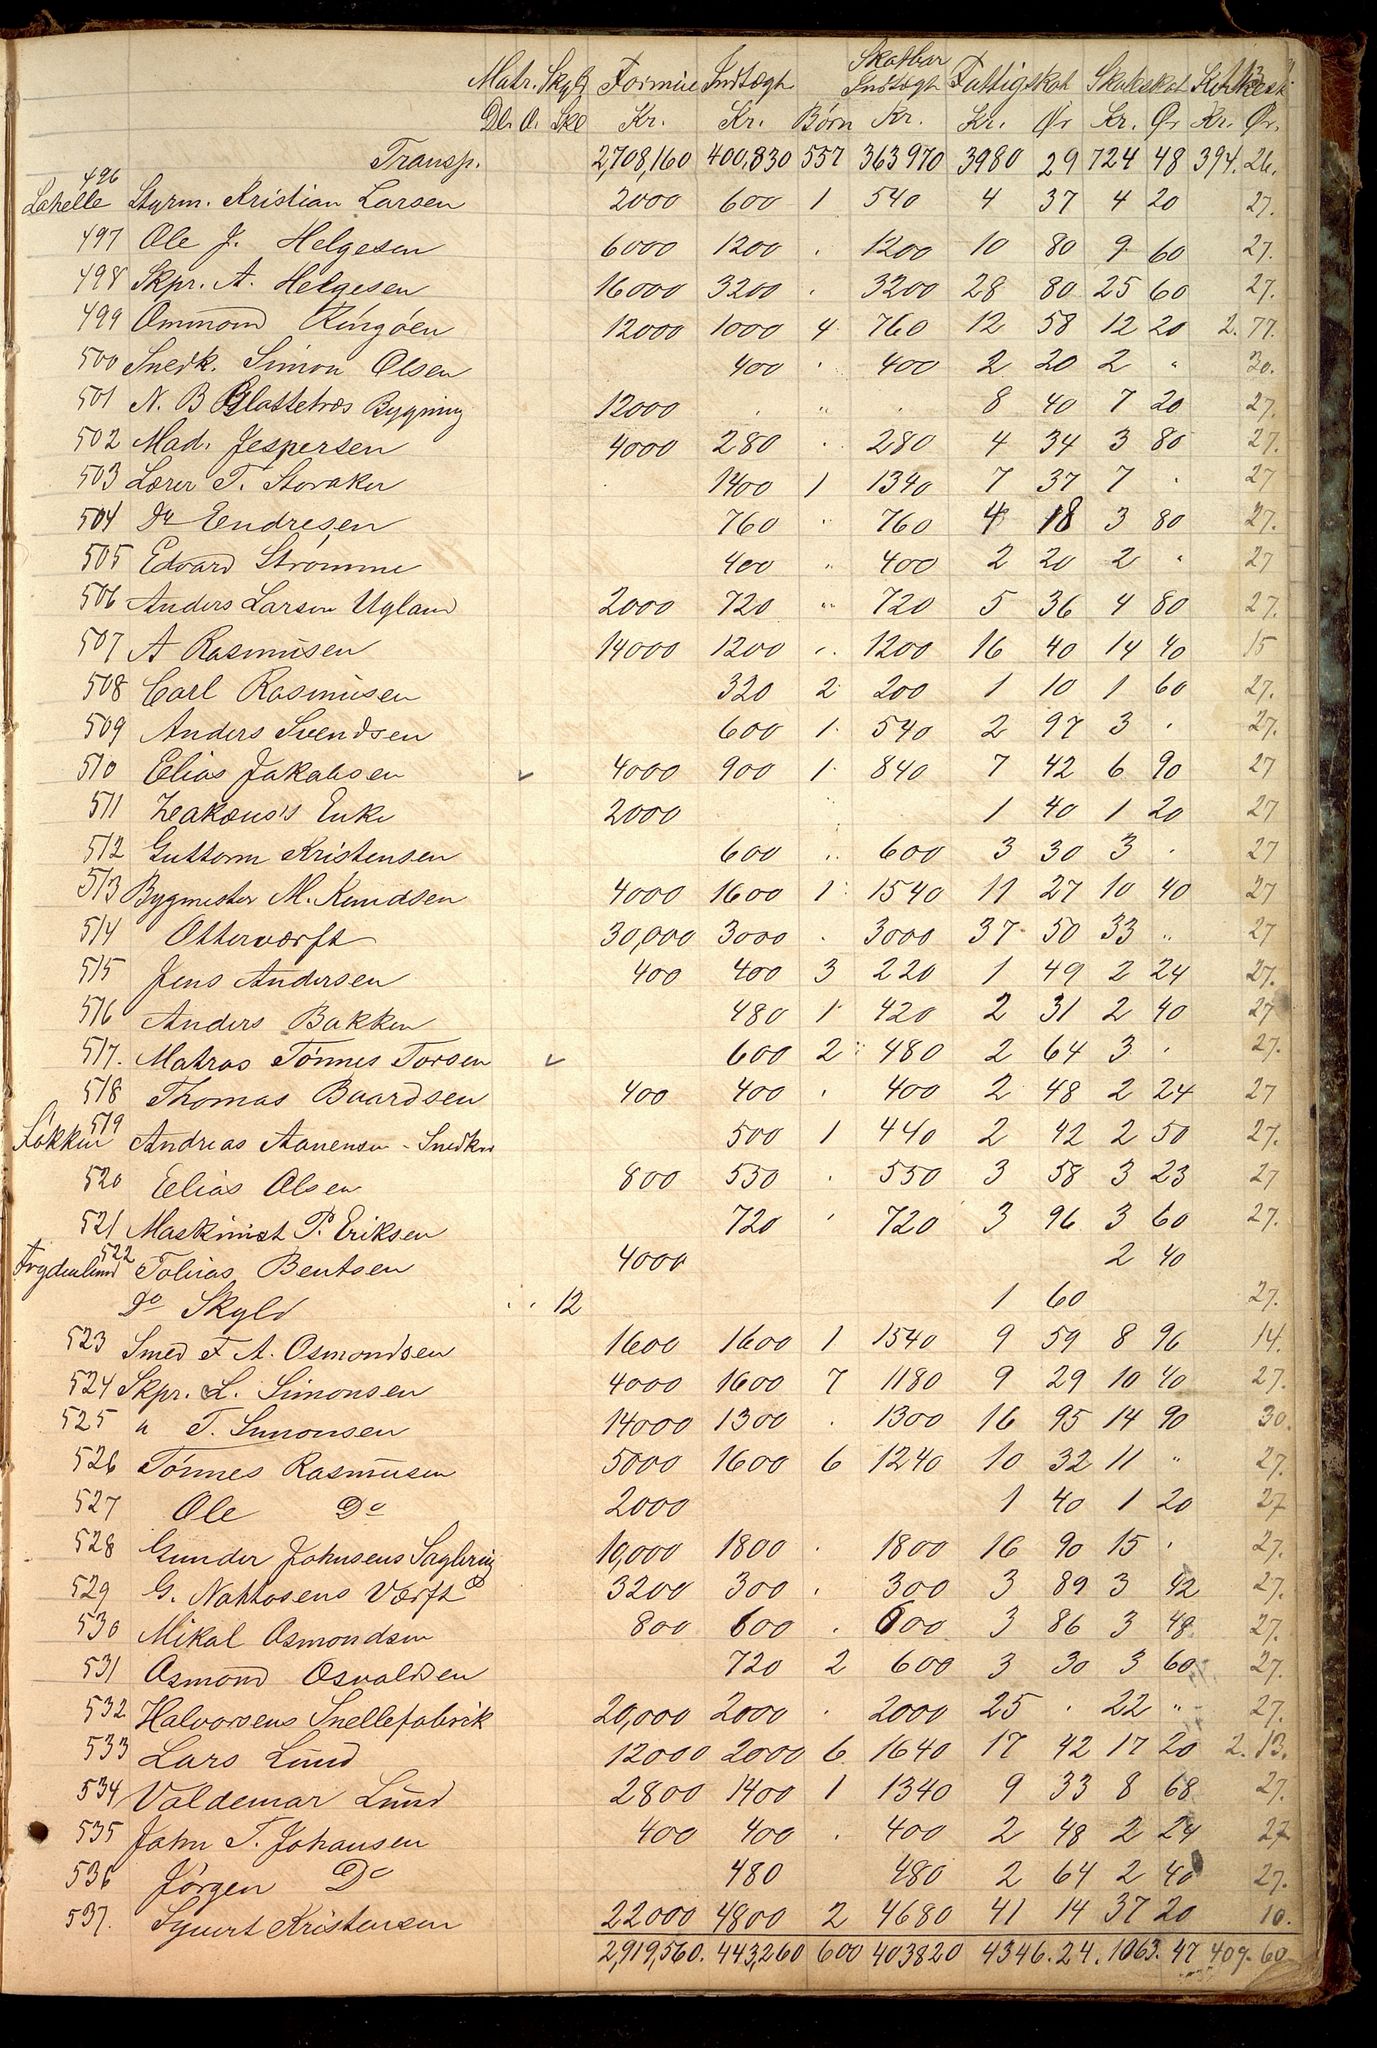 Skatbar
Matr. Skyld Formue Indtægt Indtægt Fattigskat Skoleskat
Dlr. O. Sk Kr. Kr. Børn Kr. Kr. Ør Kr. Ør Kr. Ør.
Transp. 2,708,160 400,830 557 363970 3980 29 724 48 394. 26.
496 Lahelle Styrm. Kristian Larsen 2000 600 1 540 4 37 4 20 27.
497 Ole J. Helgesen 6000 1200 . 1200 10 80 9 60 27.
498 Skpr. A. Helgesen 16000 3200 . 3200 28 80 25 60 27.
499 Ommond Ringøen 12000 1000 4 760 12 58 12 20 2. 77.
500 Snedk. Simon Olsen 400 . 400 2 20 2 " 30.
501 N. B Glattetræs Bygning 12000 . " . 8 40 7 20 27.
502 Mad. Jespersen 4000 280 . 280 4 34 3 80 27.
503 Lærer T. Storaker 1400 1 1340 7 37 7 . 27
504 Do Endresen 760 " 760 4 18 3 80 27.
505 Edvard Strømme 400 " 400 2 20 2 " 27
506 Anders Larsen Ugland 2000 720 " 720 5 36 4 80 27.
507 A Rasmusen 14000 1200 " 1200 16 40 14 40 15
508 Carl Rasmusen 320 2 200 1 10 1 60 27.
509 Anders Svendsen 600 1 540 2 97 3 . 27.
510 Elias Jakobsen 4000 900 1 840 7 42 6 90 27
511 Zeakæus's Enke 2000 1 40 1 20 27
512 Guttorm Kristensen 600 " 600 3 30 3 . 27
513 Bygmester M. Knudsen 4000 1600 1 1540 11 27 10 40 27
514 Otterværft 30,000 3000 . 3000 37 50 33 " 27
515 Jens Andersen 400 400 3 220 1 49 2 24 27.
516 Anders Bakken 480 1 420 2 31 2 40 27
517. Matros Tønnes Torsen 600 2 480 2 64 3 . 27.
518 Thomas Baardsen 400 400 . 400 2 48 2 24 27
519 Løkken Andreas Aanensen - Snedker 500 1 440 2 42 2 50 27.
520 Elias Olsen 800 550 . 550 3 58 3 23 27
521 Maskinist P. Eriksen 720 ' 720 3 96 3 60 27.
522 Frydenlund Tobias Bentsen 4000 2 40
Do Skyld . . 12 1 60 27.
523 Smed F A. Osmondsen 1600 1600 1 1540 9 59 8 96 14.
524 Skpr. L. Simonsen 4000 1600 7 1180 9 29 10 40 27.
525 " T. Simonsen 14000 1300 . 1300 16 95 14 90 30.
526 Tønnes Rasmusen 5000 1600 6 1240 10 32 11 " 27.
527 Ole Do 2000 1 40 1 20 27
528 Gunder Johnsens 10,000 1800 . 1800 16 90 15 . 27.
529 G. Værft 3200 300 . 300 3 89 3 42 27.
530 Mikal Osmondsen 800 600 . 600 3 86 3 48 27.
531 Osmond Osvaldsen 720 2 600 3 30 3 60 27.
532 Halvorsens Snellefabrik 20,000 2000 . 2000 25 . 22 " 27.
533 Lars Lund 12000 2000 6 1640 17 42 17 20 2. 13.
534 Valdemar Lund 2800 1400 1 1340 9 33 8 68 27.
535 John T. Johansen 400 400 . 400 2 48 2 24 27
536 Jørgen Do 480 480 2 64 2 40 27.
537. Syvert Kristensen 22000 4800 2 4680 41 14 37 20 10.
2,919,560. 443,260 600 403820 4346. 24. 1063. 47 409. 60